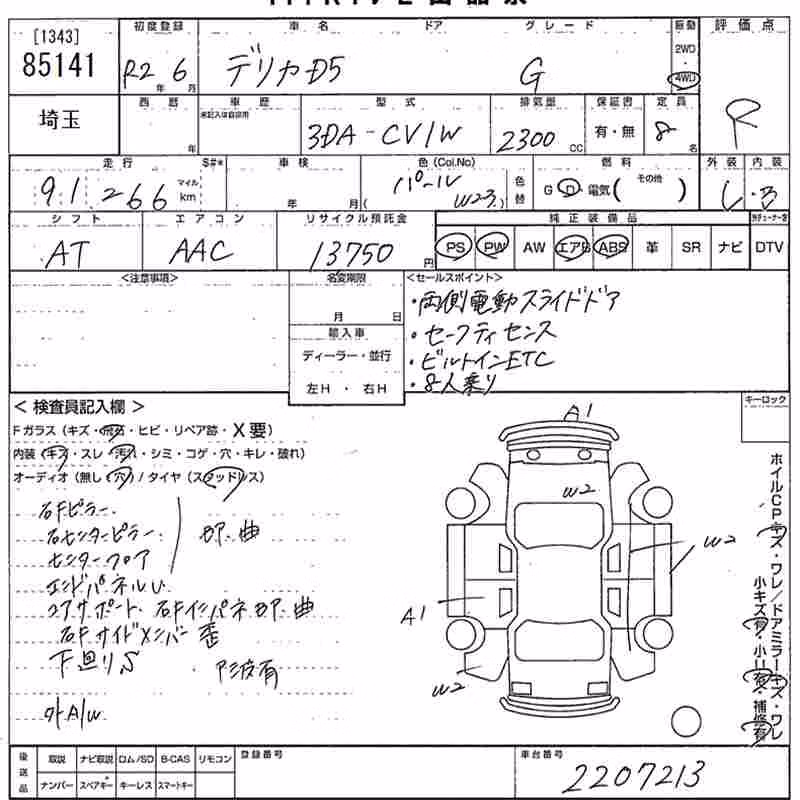 [1343]
85141
埼玉
初度登録
R2 年 6 月
車名 ドア グレード
デリカD5 G
駆動
2WD
4WD
評価点
R
西暦
年
車歴
未記入は自家用
型式
3DA-CV1W
排気量
2300 cc
保証書
有・無
定員
8 名
走行
91266
マイル
km
S#*
車検
年 月
色(Col.No)
パール
( W23 )
色替
燃料
G D・電気( その他 )
外装 内装
C・B
シフト
AT
エアコン
AAC
リサイクル預託金
13750 円
純正装備品
PS PW AW エアB ABS 革 SR ナビ DTV
<注意事項>
名変期限
月 日
輸入車
ディーラー・並行
左H・右H
<セールスポイント>
・両側電動スライドドア
・セーフティセンス
・ビルトインETC
・8人乗り
<検査員記入欄>
Fガラス(キズ・飛石・ヒビ・リペア跡・X要)
内装(キズ・スレ・汚れ・シミ・コゲ・穴・キレ・破れ)
オーディオ(無し・穴)/タイヤ(スタッドレス)
右Fピラー
右センターピラー
センターフロア
凹、曲
エンドパネルU
コアサポート、右Fインパネ凹、曲
右Fサイドメンバー歪
下廻りS
外A/W
キーロック
A1
W2
W2
A1
W2
ホイルCPキズ・ワレ/ドアミラーキズ・ワレ
小キズ有・小凹有・補修有
後送品
取説 ナビ取説 ロム/SD B-CAS リモコン
ナンバー スペアキー キーレス スマートキー
登録番号
車台番号
2207213